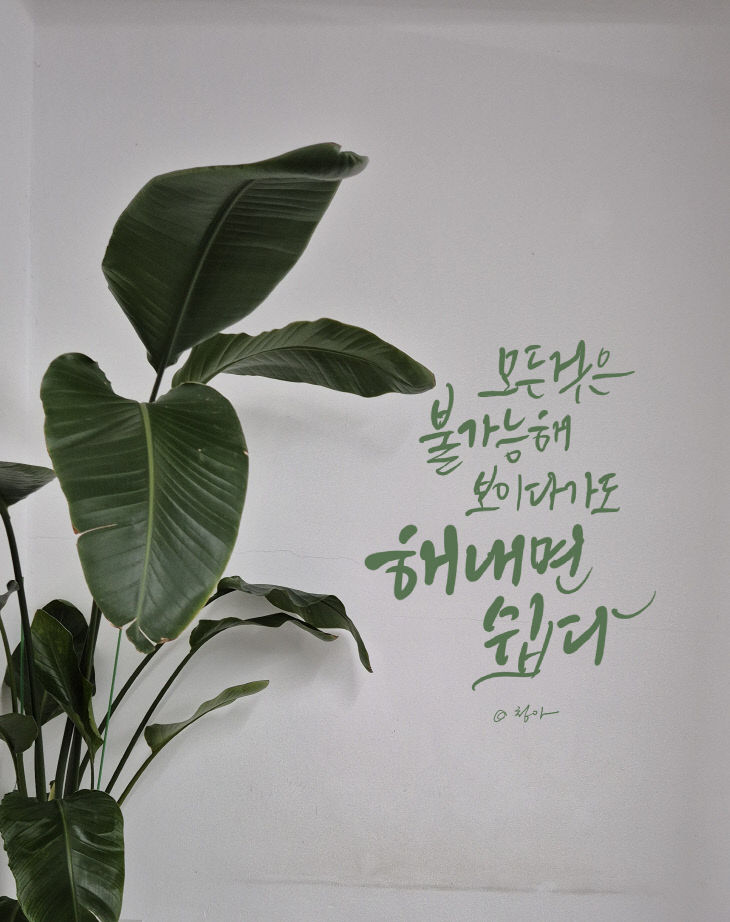 모든것은
불가능해
보이다가도
해내면
쉽다
© 청아